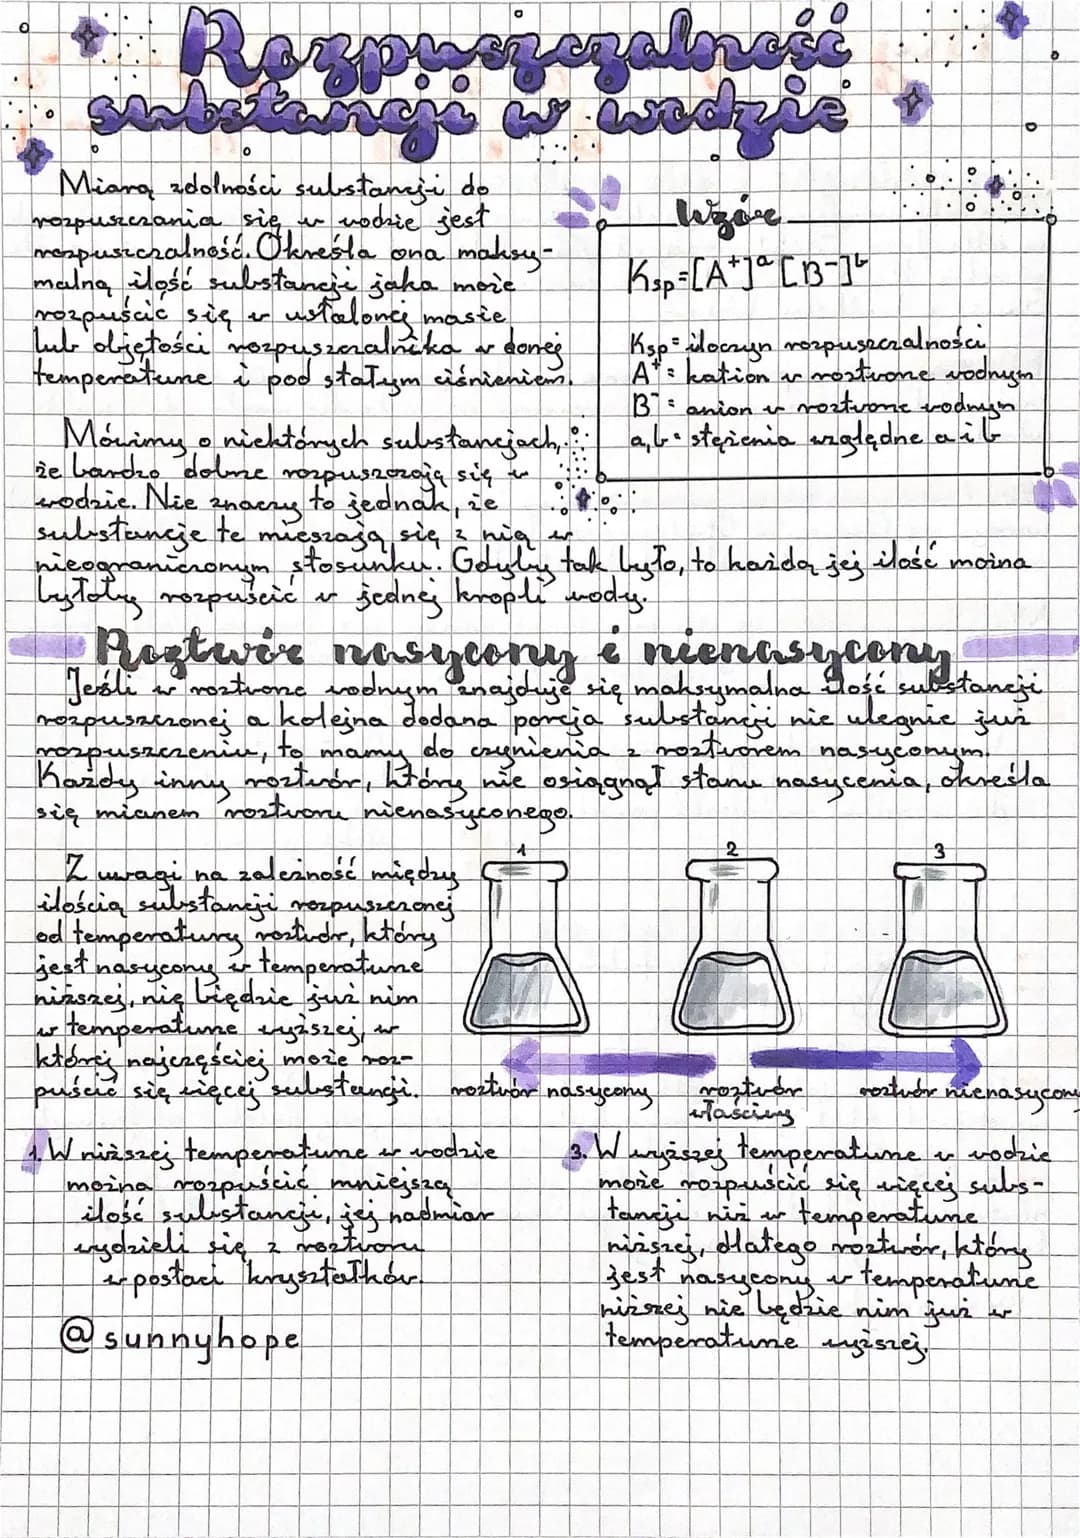 Rozpuszczalność
substancji w wodzie
Miarą zdolności substancji do
rozpuszczania się w wodzie jest
rozpuszczalność. Określa ona maksy-
malną ilość substancji jaka może
rozpuścić się w ustalonej masie
lub objętości rozpuszczalnika w danej
temperaturze i pod stałym ciśnieniem.
Wzór
Ksp=[A⁺]ᵃ [B⁻]ᵇ
Ksp= iloczyn rozpuszczalności
A⁺= kation w roztworze wodnym
B⁻= anion w roztworze wodnym
a,b= stężenia względne a i b
Mówimy o niektórych substancjach,
że bardzo dobrze rozpuszczają się w
wodzie. Nie znaczy to jednak, że
substancje te mieszają się z nią w
nieograniczonym stosunku. Gdyby tak było, to każdą jej ilość można
byłoby rozpuścić w jednej kropli wody.
Roztwór nasycony i nienasycony
Jeśli w roztworze wodnym znajduje się maksymalna ilość substancji
rozpuszczonej a kolejna dodana porcja substancji nie ulegnie już
rozpuszczeniu, to mamy do czynienia z roztworem nasyconym.
Każdy inny roztwór, który nie osiągnął stanu nasycenia, określa
się mianem roztworu nienasyconego.
Z uwagi na zależność między
ilością substancji rozpuszczonej
od temperatury roztwór, który
jest nasycony w temperaturze
niższej, nie będzie już nim
w temperaturze wyższej, w
której najczęściej może roz-
puścić się więcej substancji.
1 2 3
roztwór nasycony roztwór roztwór nienasycony
właściwy
1. W niższej temperaturze w wodzie
można rozpuścić mniejszą
ilość substancji, jej nadmiar
wydzieli się z roztworu
w postaci kryształków.
@sunnyhope
3. W wyższej temperaturze w wodzie
może rozpuścić się więcej subs-
tancji niż w temperaturze
niższej, dlatego roztwór, który
jest nasycony w temperaturze
niższej nie będzie nim już w
temperaturze wyższej.